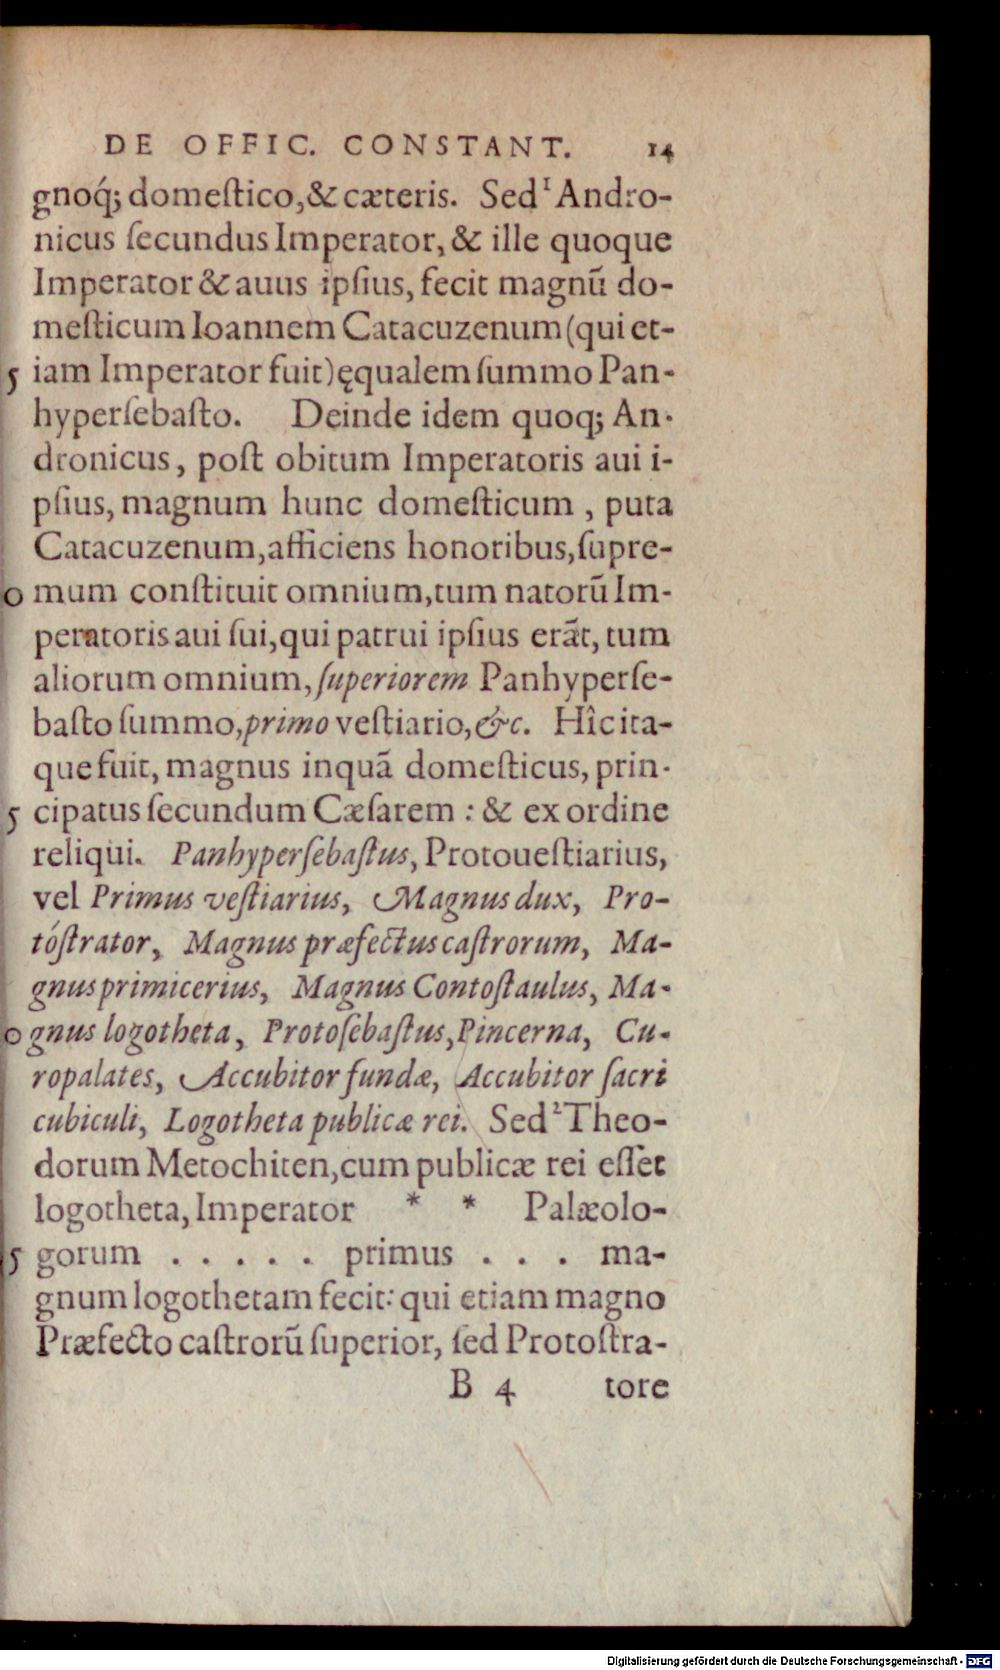 DE OFFIC. CONSTANT. 14
gnoq́; domeſtico, & cæteris. Sed¹ Andro-
nicus ſecundus Imperator, & ille quoque
Imperator & auus ipſius, fecit magnū do-
meſticum Ioannem Catacuzenum (qui et-
5 iam Imperator fuit) ęqualem ſummo Pan-
hyperſebaſto. Deinde idem quoq; An-
dronicus, poſt obitum Imperatoris aui i-
pſius, magnum hunc domeſticum, puta
Catacuzenum, afficiens honoribus, ſupre-
0 mum conſtituit omnium, tum natorū Im-
peratoris aui ſui, qui patrui ipſius erāt, tum
aliorum omnium, ſuperiorem Panhyperſe-
baſto ſummo, primo veſtiario, &c. Hîc ita-
que fuit, magnus inquā domeſticus, prin-
5 cipatus ſecundum Cæſarem : & ex ordine
reliqui. Panhyperſebaſtus, Protoueſtiarius,
vel Primus veſtiarius, Magnus dux, Pro-
tóſtrator, Magnus præfectus caſtrorum, Ma-
gnus primicerius, Magnus Contoſtaulus, Ma-
0 gnus logotheta, Protoſebaſtus, Pincerna, Cu-
ropalates, Accubitor fundæ, Accubitor ſacri
cubiculi, Logotheta publicæ rei. Sed² Theo-
dorum Metochiten, cum publicæ rei eſſet
logotheta, Imperator * * Palæolo-
5 gorum . . . . . primus . . . ma-
gnum logothetam fecit: qui etiam magno
Præfecto caſtrorū ſuperior, ſed Protoſtra-
B 4 tore
Digitalisierung gefördert durch die Deutsche Forschungsgemeinschaft - DFG